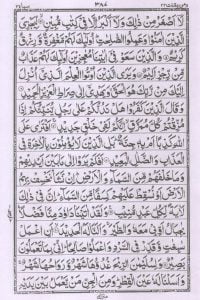 ومن يقنت ٢٢ ٣٨٤ سبا ٣٤
لَآ اَصْغَرُ مِنْ ذٰلِكَ وَلَآ اَكْبَرُ اِلَّا فِيْ كِتٰبٍ مُّبِيْنٍ لِّيَجْزِيَ
الَّذِيْنَ اٰمَنُوْا وَعَمِلُوا الصّٰلِحٰتِ اُولٰٓئِكَ لَهُمْ مَّغْفِرَةٌ وَّرِزْقٌ
كَرِيْمٌ وَالَّذِيْنَ سَعَوْ فِيْٓ اٰيٰتِنَا مُعٰجِزِيْنَ اُولٰٓئِكَ لَهُمْ عَذَابٌ
مِّنْ رِّجْزٍ اَلِيْمٌ وَيَرَى الَّذِيْنَ اُوْتُوا الْعِلْمَ الَّذِيْٓ اُنْزِلَ
اِلَيْكَ مِنْ رَّبِّكَ هُوَ الْحَقَّ وَيَهْدِيْٓ اِلٰى صِرَاطِ الْعَزِيْزِ الْحَمِيْدِ
وَقَالَ الَّذِيْنَ كَفَرُوْا هَلْ نَدُلُّكُمْ عَلٰى رَجُلٍ يُّنَبِّئُكُمْ اِذَا
مُزِّقْتُمْ كُلَّ مُمَزَّقٍ اِنَّكُمْ لَفِيْ خَلْقٍ جَدِيْدٍ اَفْتَرٰى عَلَى
اللّٰهِ كَذِبًا اَمْ بِهٖ جِنَّةٌ بَلِ الَّذِيْنَ لَا يُؤْمِنُوْنَ بِالْاٰخِرَةِ فِي
الْعَذَابِ وَالضَّلٰلِ الْبَعِيْدِ اَفَلَمْ يَرَوْا اِلٰى مَا بَيْنَ اَيْدِيْهِمْ
وَمَا خَلْفَهُمْ مِّنَ السَّمَآءِ وَالْاَرْضِ اِنْ نَّشَاْ نَخْسِفْ بِهِمُ
الْاَرْضَ اَوْ نُسْقِطْ عَلَيْهِمْ كِسَفًا مِّنَ السَّمَآءِ اِنَّ فِيْ ذٰلِكَ
لَاٰيَةً لِّكُلِّ عَبْدٍ مُّنِيْبٍ وَلَقَدْ اٰتَيْنَا دَاوٗدَ مِنَّا فَضْلًا
يٰجِبَالُ اَوِّبِيْ مَعَهٗ وَالطَّيْرَ وَاَلَنَّا لَهُ الْحَدِيْدَ اَنِ اعْمَلْ
سٰبِغٰتٍ وَّقَدِّرْ فِي السَّرْدِ وَاعْمَلُوْا صَالِحًا اِنِّيْ بِمَا تَعْمَلُوْنَ
بَصِيْرٌ وَلِسُلَيْمٰنَ الرِّيْحَ غُدُوُّهَا شَهْرٌ وَّرَوَاحُهَا شَهْرٌ
وَاَسَلْنَا لَهٗ عَيْنَ الْقِطْرِ وَمِنَ الْجِنِّ مَنْ يَّعْمَلُ بَيْنَ يَدَيْهِ